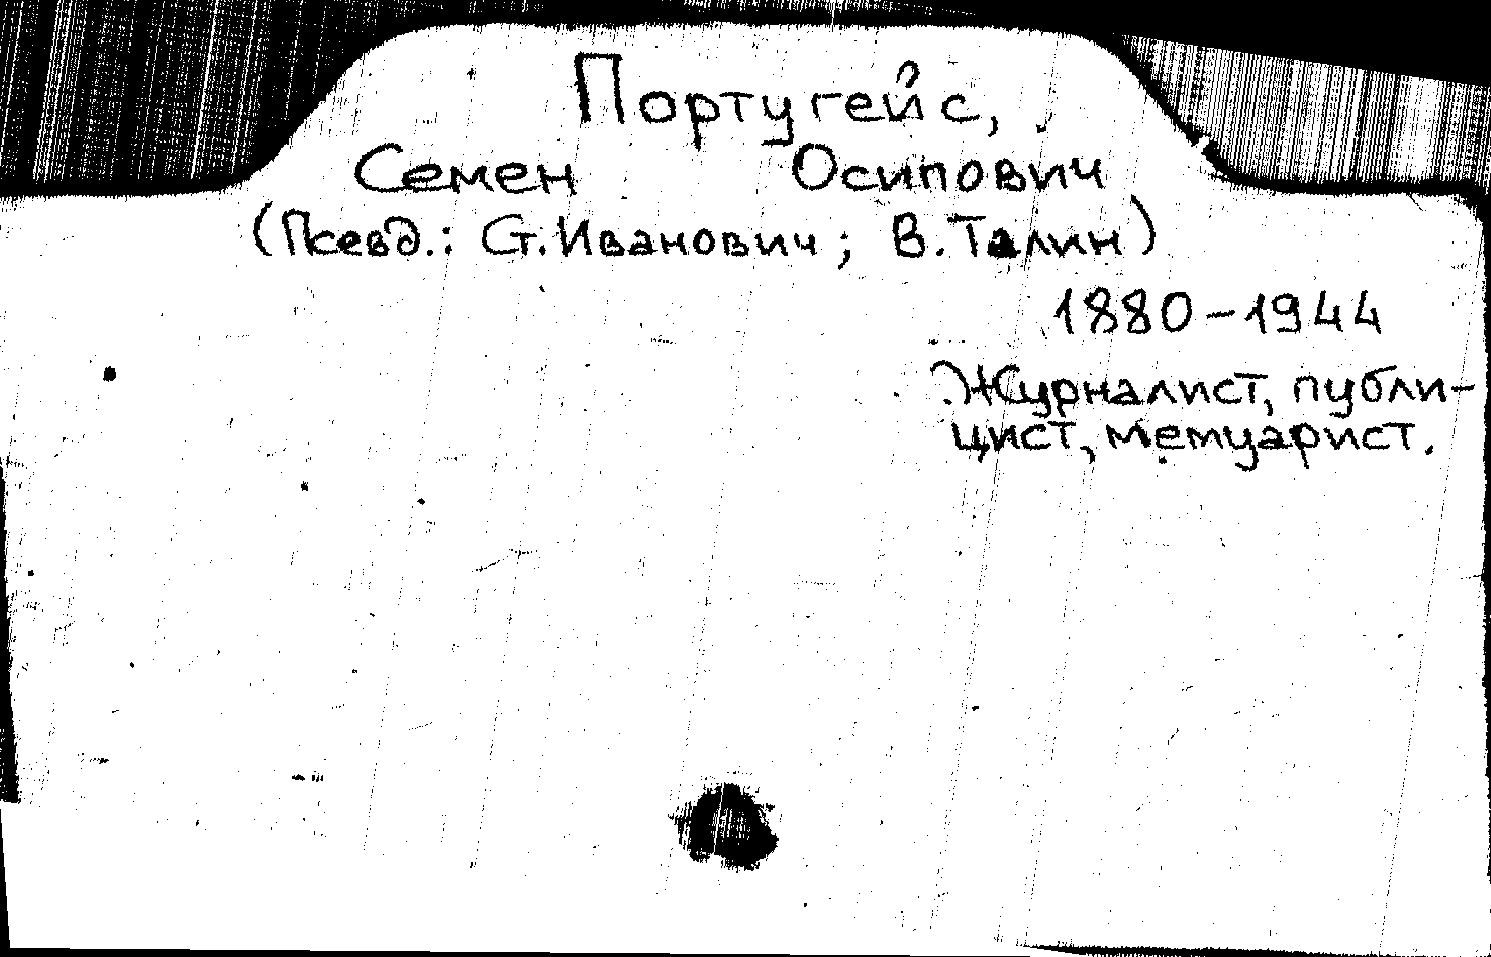 Португейс,
Семен Осипович
(Псевд.: Ст. Иванович; В. Талин)
1880-1944
Журналист, публи-
цист, мемуарист.